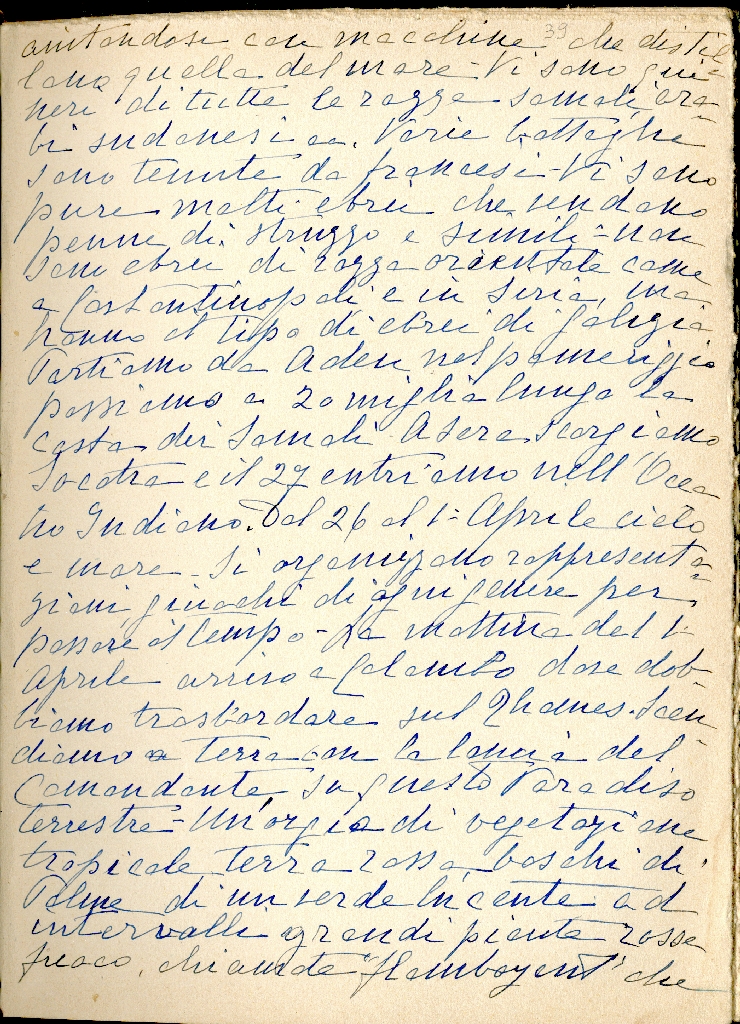 39
aiutandosi con macchine che distil-
lano quella del mare - Vi sono quì
neri di tutte le razze somali, ara-
bi sudanesi ecc. Varie botteghe
sono tenute da francesi - Vi sono
pure molti ebrei che vendono
penne di struzzo e simili - non
sono ebrei di razza orientale come
a Costantinopoli e in Siria, ma
hanno il tipo di ebrei di Galizia
Partiamo da Aden nel pomeriggio
passiamo a 20 miglia lungo la
costa dei Somali. A sera scorgiamo
Socotra e il 27 entriamo nell'Ocea-
no Indiano. Dal 26 al 1° Aprile cielo
e mare - Si organizzano rappresenta-
zioni, giuochi di ogni genere per
passare il tempo - La mattina del 1°
Aprile arrivo a Colombo dove dob-
biamo trasbordare sul Thames. Scen-
diamo a terra con la lancia del
Comandante su questo Paradiso
terrestre - Un'orgia di vegetazione
tropicale, terra rossa, boschi di
Palme di un verde lucente e ad
intervalli grandi piante rosso
fuoco, chiamate "flamboyent" che